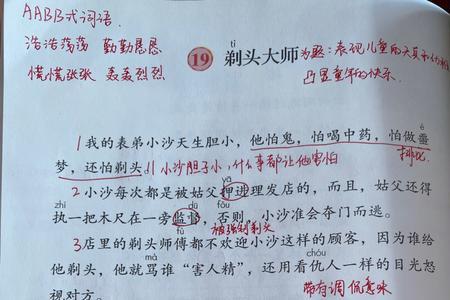 AABB式词语.
浩浩荡荡 勤勤恳恳
慌慌张张 轰轰烈烈
tì
19 剃头大师
为题:表现儿童的天真和
凸显童年的快乐.
1我的表弟小沙天生胆小,他怕鬼,怕喝中药,怕做噩
è
梦,还怕剃头。小沙胆子小,什么事都让他害怕
排比
2小沙每次都是被姑父押进理发店的,而且,姑父还得
yā
zhí dū fǒu
执一把木尺在一旁监督,否则,小沙准会夺门而逃。
被强制剃头
fù
3店里的剃头师傅都不欢迎小沙这样的顾客,因为谁给
chóu
他剃头,他就骂谁“害人精”,还用看仇人一样的目光怒
视对方。
带有调侃意味